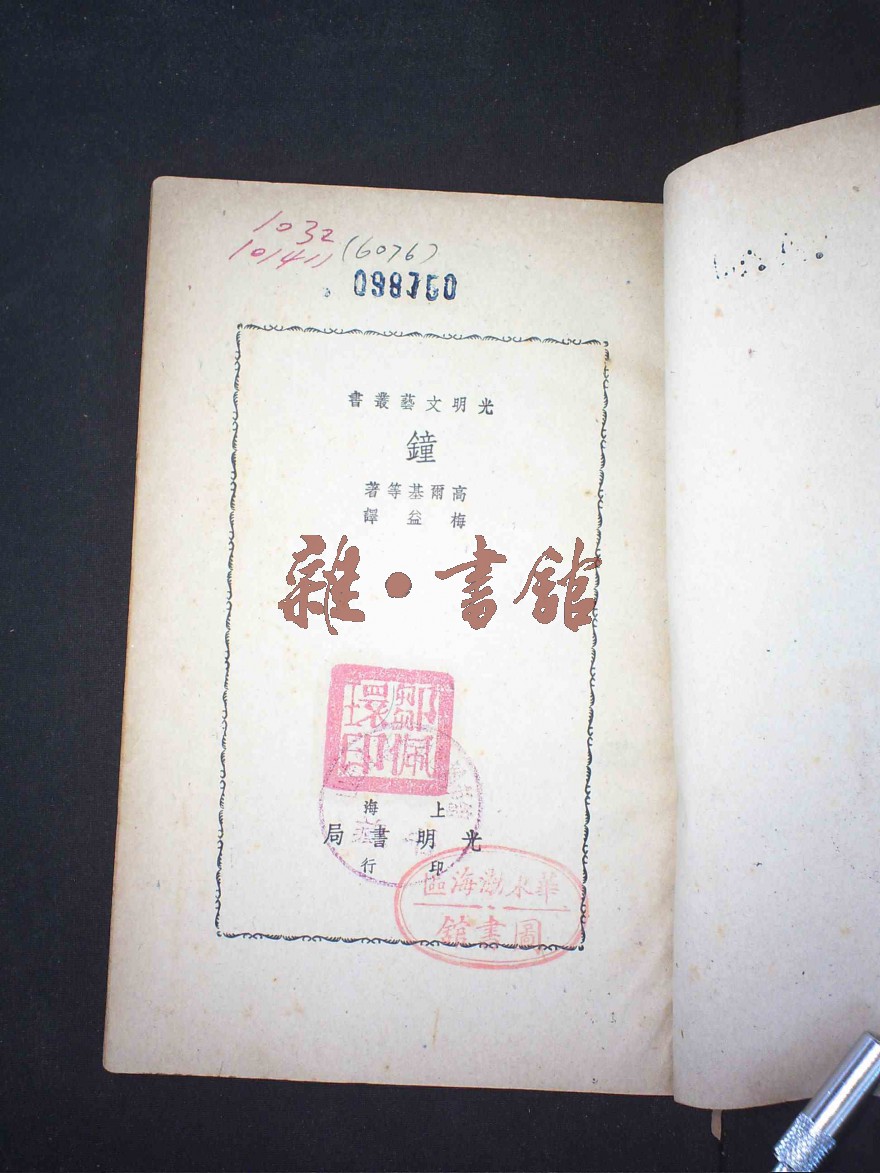 1032
101411 (6076)
光明文藝叢書
鐘
高爾基等著
梅益譯
雜•書館
鄒佩環印
上海
光明書局
印行
華東渤海區
圖書館